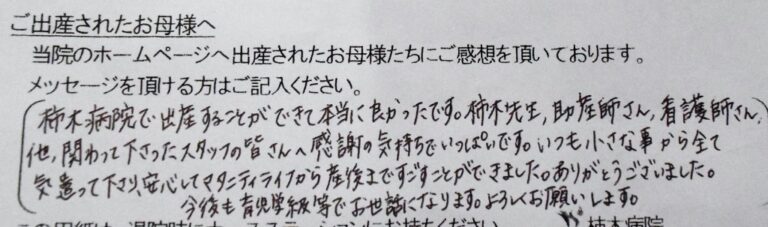 ご出産されたお母様へ
当院のホームページへ出産されたお母様たちにご感想を頂いております。
メッセージを頂ける方はご記入ください。
柿木病院で出産することができて本当に良かったです。柿木先生,助産師さん,看護師さん,
他,関わって下さったスタッフの皆さんへ感謝の気持ちでいっぱいです。いつも小さな事から全て
気遣って下さり,安心してマタニティライフから産後まですごすことができました。ありがとうございました。
今後も育児学級等でお世話になります。よろしくお願いします。
この用紙は、退院時にナースステーションにお持ちください 柿木病院